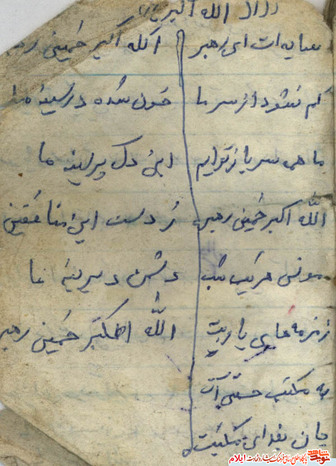 الله اکبر
سایه ات ای رهبر
الله اکبر خمینی رهبر
کم نشود از سر ما
خون شده در سینه ما
ما همی سرباز توایم
این دل پر کینه ما
الله اکبر خمینی رهبر
ز دست این منافقین
مونس هر یک شب
دشمن دیرینه ما
زمزمه های یا ربت
الله اکبر خمینی رهبر
به مکتب حسینی ات
جان فدای مکتبت